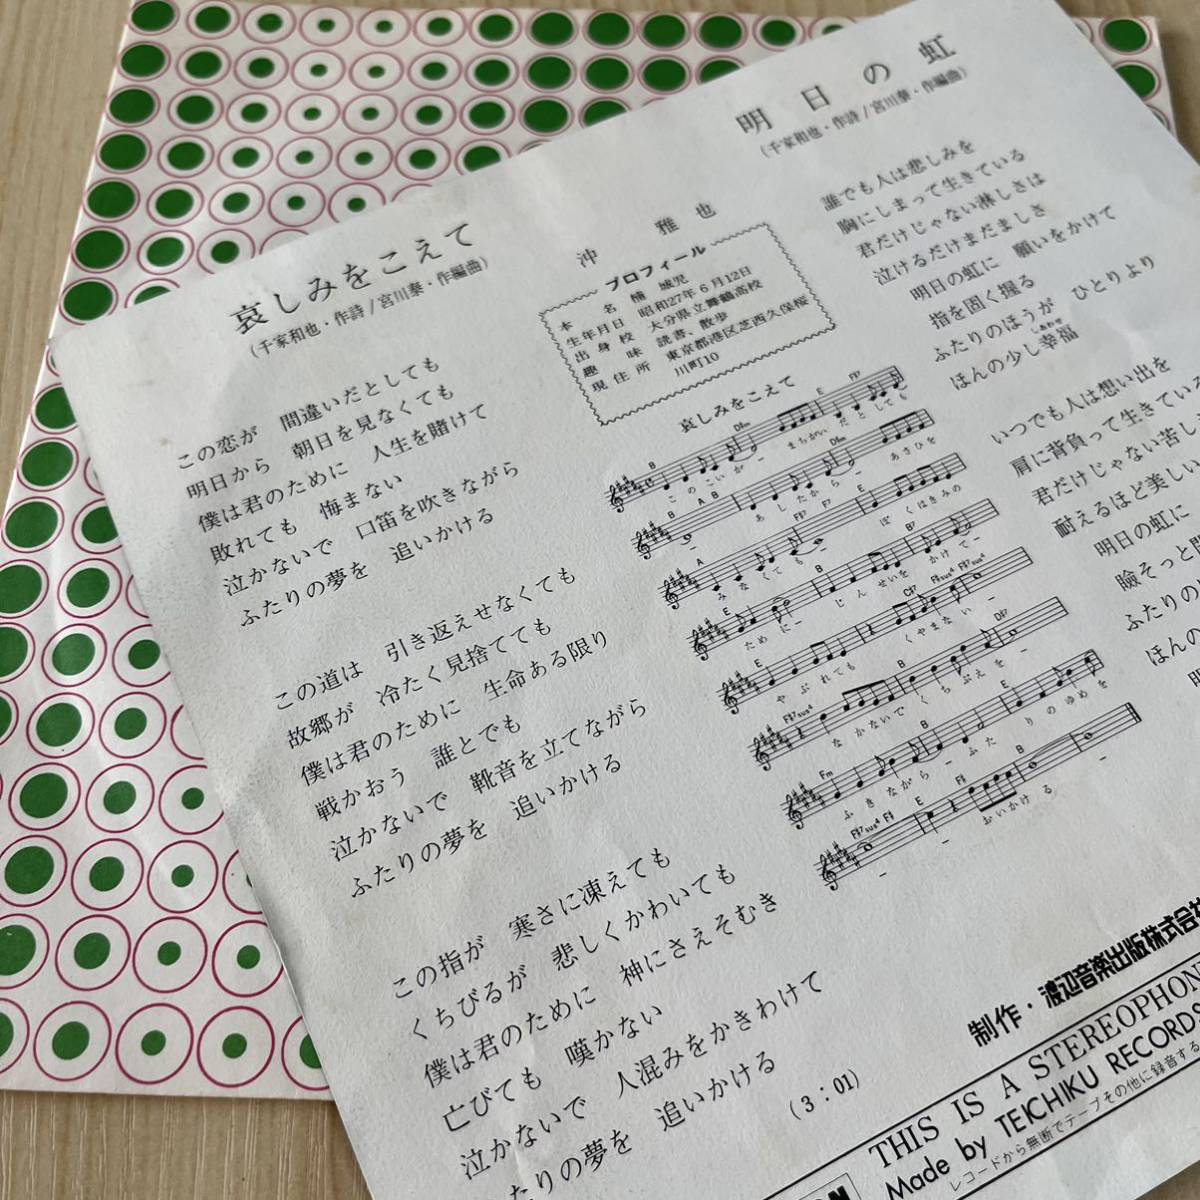 哀しみをこえて
(千家和也・作詩/宮川泰・作編曲)
この恋が 間違いだとしても
明日から 朝日を見なくても
僕は君のために 人生を賭けて
敗れても 悔まない
泣かないで 口笛を吹きながら
ふたりの夢を 追いかける
この道は 引き返えせなくても
故郷が 冷たく見捨てても
僕は君のために 生命ある限り
戦かおう 誰とでも
泣かないで 靴音を立てながら
ふたりの夢を 追いかける
この指が 寒さに凍えても
くちびるが 悲しくかわいても
僕は君のために 神にさえそむき
亡びても 嘆かない
泣かないで 人混みをかきわけて
ふたりの夢を 追いかける
(3:01)
沖 雅也
プロフィール
本名 楠 城児
生年月日 昭和27年6月12日
出身校 大分県立舞鶴高校
趣味 読書、散歩
現住所 東京都港区芝西久保桜
川町10
哀しみをこえて
このこいが まちがい だとしても
あしたから あさひを
みなくても ぼくはきみの
ために じんせいを かけて
やぶれても くやまない
なかないで くちぶえを
ふきながら ふたりのゆめを
おいかける
明日の虹
(千家和也・作詩/宮川泰・作編曲)
誰でも人は悲しみを
胸にしまって生きている
君だけじゃない淋しさは
泣けるだけまだましさ
明日の虹に 願いをかけて
指を固く握る
ふたりのほうが ひとりより
しあわせ
ほんの少し幸福
いつでも人は想い出を
肩に背負って生きている
君だけじゃない苦し
耐えるほど美しい
明日の虹に
瞼そっと
ふたりの
ほんの
明
制作・渡辺音楽出版株式会社
THIS IS A STEREOPHON
Made by TEICHIKU RECORDS
レコードから無断でテープその他に録音する